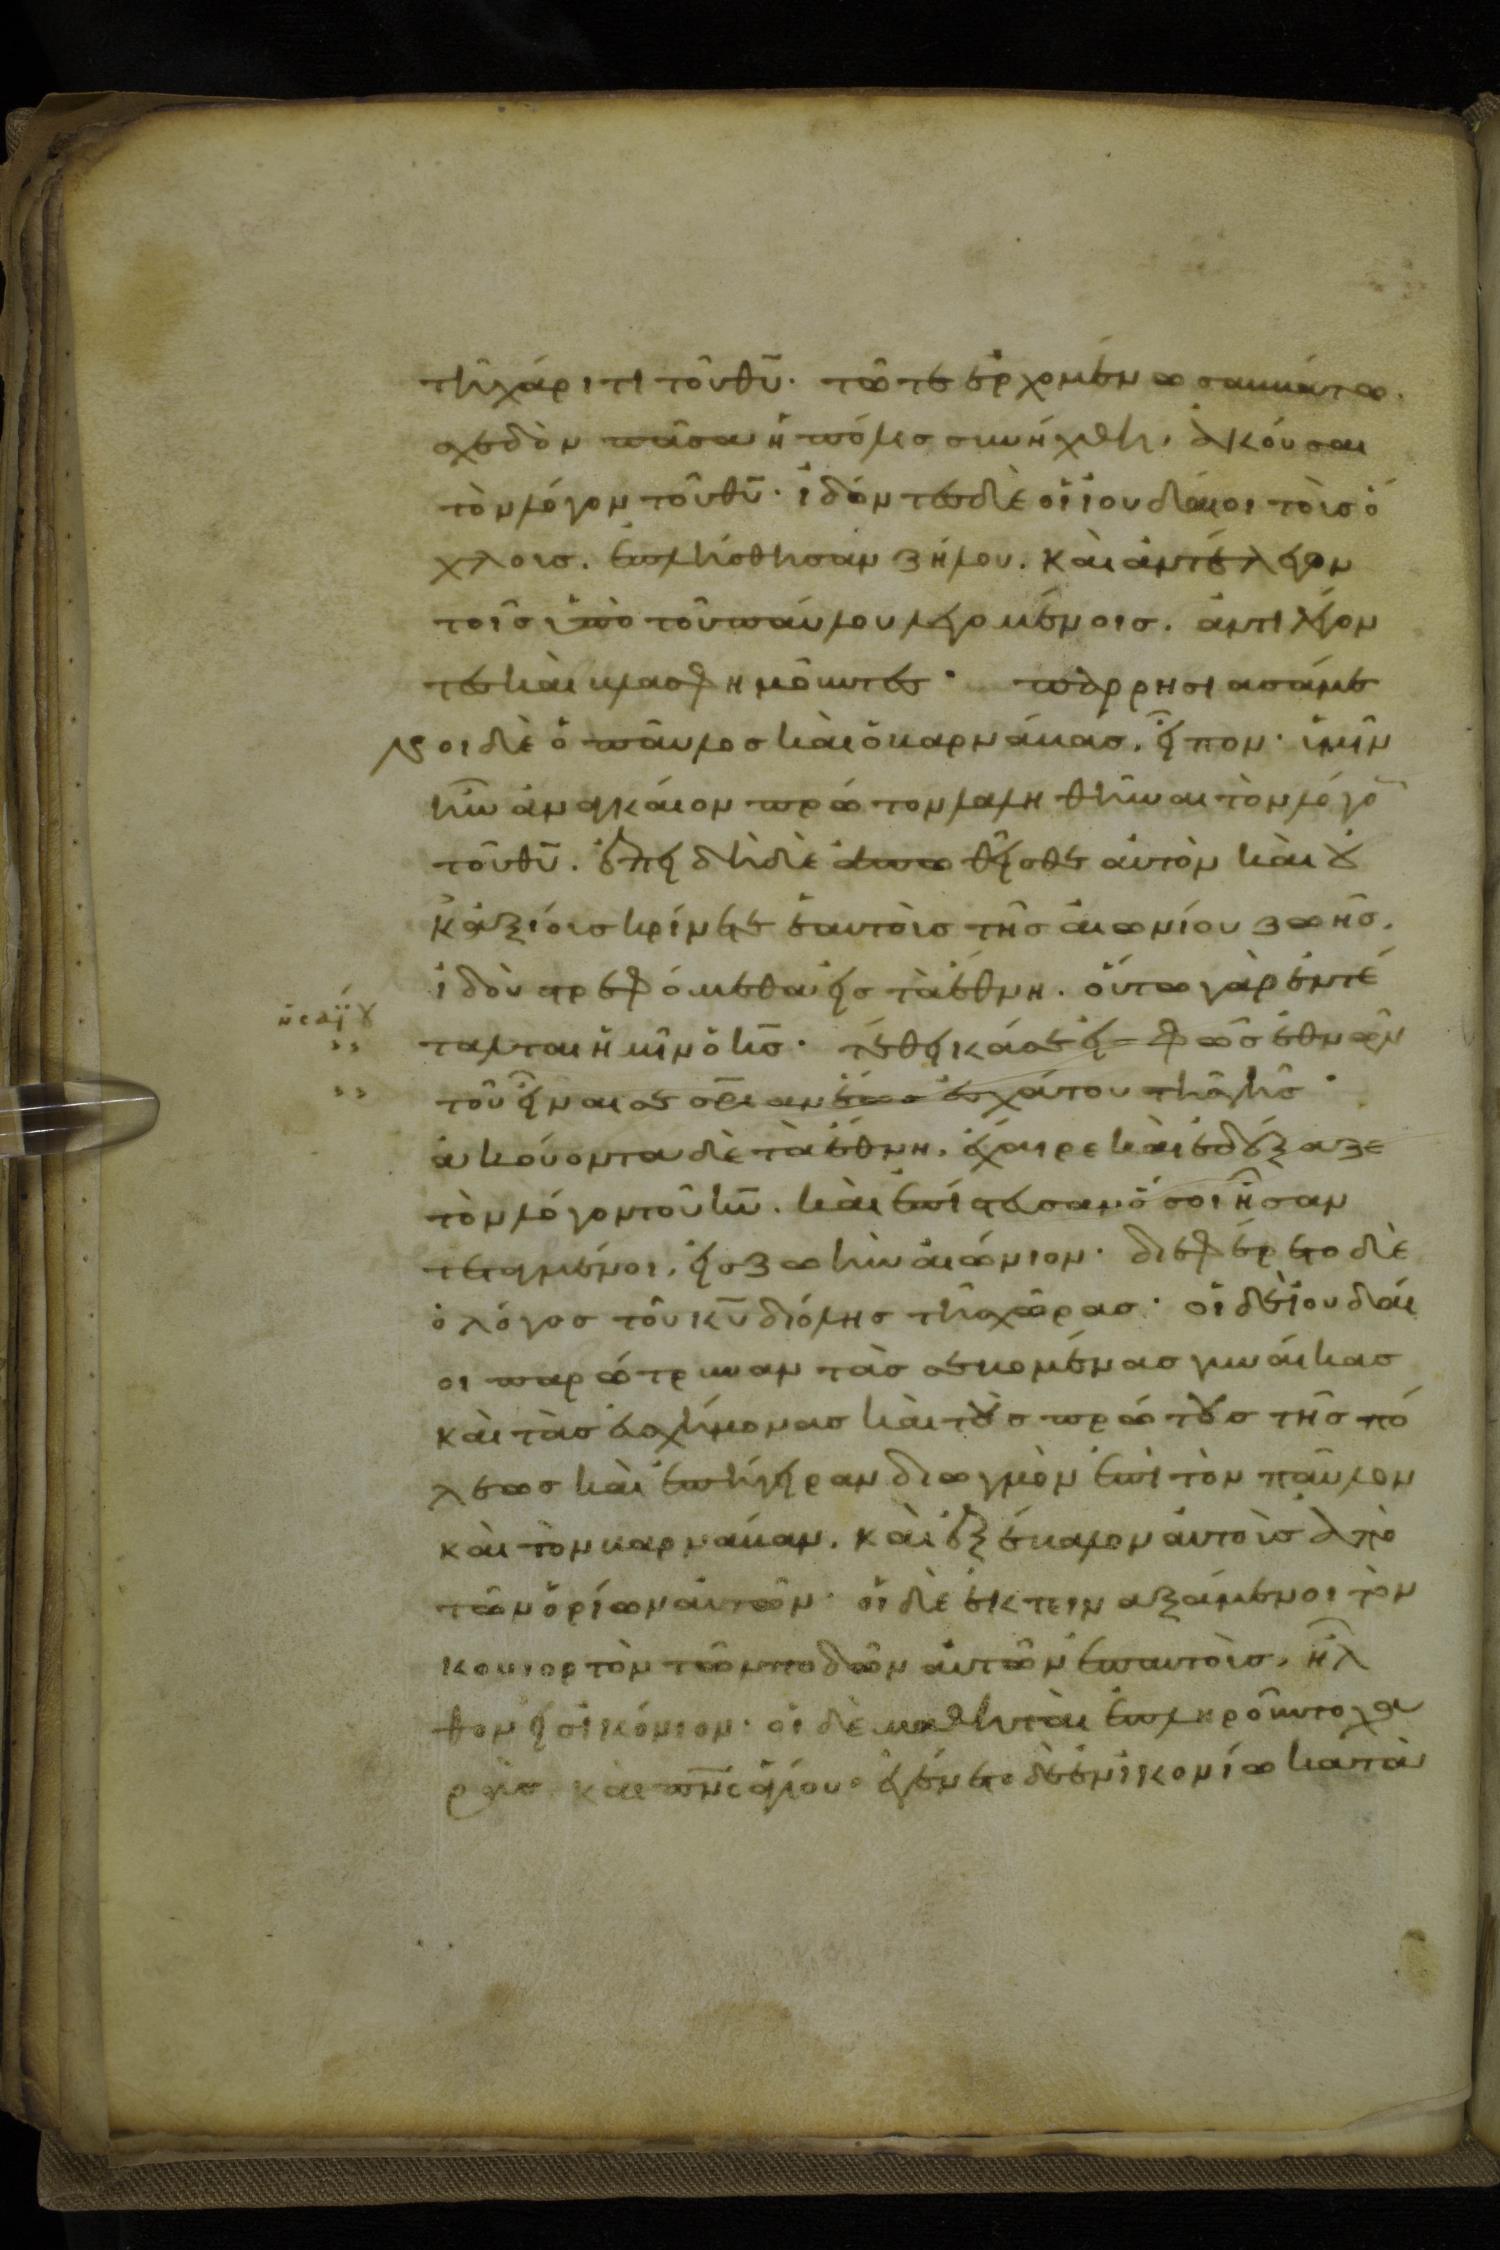 τῆ χάριτι τοῦ θῦ· τῶ τε ἐρχομένω σαββάτω.
σχεδὸν πᾶσα ἡ πόλις συνήχθη, ἀκοῦσαι
τὸν λόγον τοῦ θῦ· ἰδόντες δὲ οἱ ἰουδαῖοι τοὺσ ὄ
χλους. ἐπλήσθησαν ζήλου. καὶ ἀντέλεγον
τοῖς ὑπὸ τοῦ παύλου λεγομένοις. ἀντιλέγον
τες καὶ βλασφημοῦντες· παρρησιασάμε
νοι δὲ ὁ παῦλος καὶ ὁ βαρνάβας, εἶπον· ὑμῖν
ἦν ἀναγκαῖον πρῶτον λαληθῆναι τὸν λόγο̅
τοῦ θῦ. ἐπειδὴ δὲ ἀπωθεῖσθε αὐτὸν καὶ οὐ
κ ἀξίους κρίνετε ἑαυτοὺς τῆς αἰωνίου ζωῆς.
ἰδοὺ στρεφόμεθα εἰς τὰ ἔθνη. οὕτω γὰρ ἐντέ
ταλται ἡμῖν ὁ κς̅· τέθεικά σε εἰς φῶς ἐθνῶν
ἠσαΐου
τοῦ εἶναί σε σρ̅ιαν ἕως ἐσχάτου τῆς γῆς·
ἀκούοντα δὲ τὰ ἔθνη. ἔχαιρε καὶ ἐδόξαζε
τὸν λόγον τοῦ κυ̅. καὶ ἐπίστευσαν ὅσοι ἦσαν
τεταγμένοι, εἰς ζωὴν αἰώνιον· διεφέρετο δὲ
ὁ λόγος τοῦ κυ̅ δι' ὅλης τῆς χώρας· οἱ δὲ ἰουδαῖ
οι παρώτρυναν τὰς σεβομένας γυναῖκας
καὶ τὰς εὐσχήμονας καὶ τοὺς πρώτους τῆς πό
λεως καὶ ἐπήγειραν διωγμὸν ἐπὶ τὸν παῦλον
καὶ τὸν βαρνάβαν. καὶ ἐξέβαλον αὐτοὺς ἀπὸ
τῶν ὁρίων αὐτῶν· οἱ δὲ ἐκτειναξάμενοι τὸν
κονιορτὸν τῶν ποδῶν αὐτῶν ἐπ' αὐτοὺς, ἦλ
θον εἰς ἰκόνιον· οἱ δὲ μαθηταὶ ἐπληροῦντο χα
ρᾶς καὶ πν̅ς ἁγίου· ἐγένετο δὲ ἐν ἰκονίω κατὰ